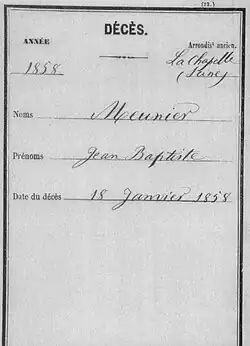 (23.)
DÉCÈS.
ANNÉE
Arrondist ancien.
1858
La Chapelle
(Seine)
Noms Meunier
Prénoms Jean Baptiste
Date du décès 18 Janvier 1858